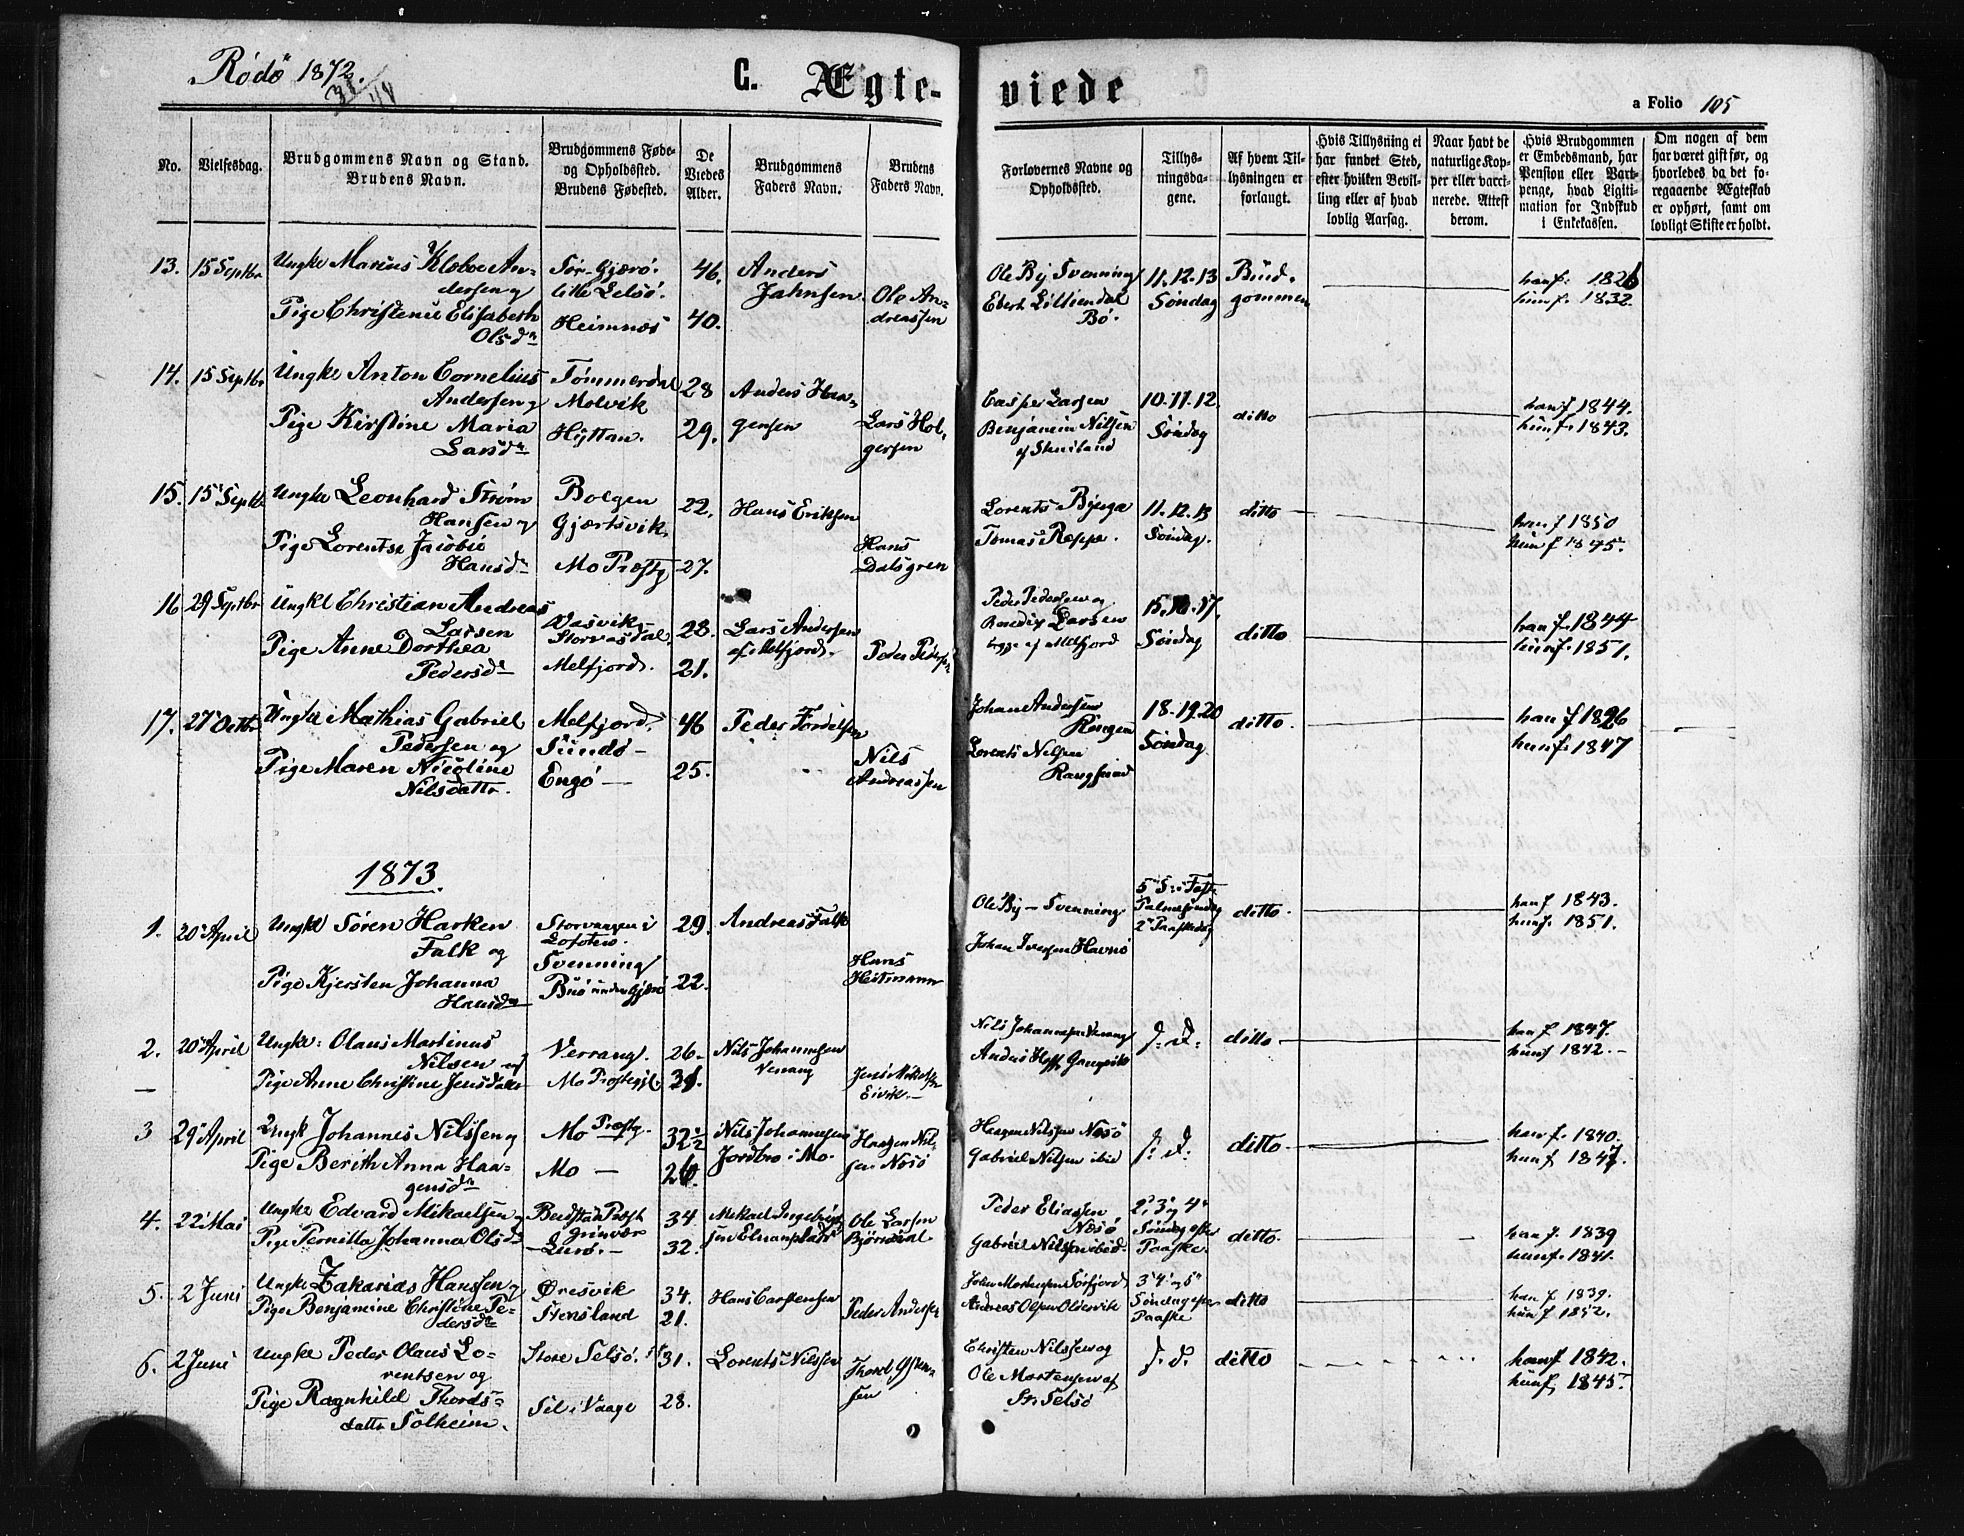 Rödö 1872.
C. Ægte-
viede
a Folio 105
No.
Vielsesdag.
Brudgommens Navn og Stand.
Brudens Navn.
Brudgommens Føde-
og Opholdssted.
Brudens Fødested.
De
Viedes
Alder.
Brudgommens
Faders Navn.
Brudens
Faders Navn.
Forlovernes Navne og
Opholdssted.
Tillys-
ningsda-
gene.
Af hvem Til-
lysningen er
forlangt.
Hvis Tillysning ei
har fundet Sted,
efter hvilken Bevil-
ling eller af hvad
lovlig Aarsag.
Naar havt de
naturlige Kop-
per eller vacci-
nerede. Attest
derom.
Hvis Brudgommen
er Embedsmand, har
Pension eller Vart-
penge, hvad Ligiti-
mation for Indskud
i Enkekassen.
Om nogen af dem
har været gift før, og
hvorledes da det fo-
regaaende Ægteskab
er ophørt, samt om
lovligt Skifte er holdt.
13. 15 Septbr Ungke Marius Klæboe An-
dersen og
Pige Christense Elisabeth
Olsdr
Sør-Gjærö.
lille Selsö.
Heimnæs
46.
40.
Anders
Jahnsen
Ole An-
dreassen
Ole By Svenning
Ebert Lilliendal
Bö.
11. 12. 13
Søndag
Brud-
gommen
han f. 1826
hun f. 1832.
14. 15 Septbr Ungke Anton Cornelius
Andersen og
Pige Kirstine Maria
Larsdr
Tömmerdal
Molvik
Hyttan.
28
29.
Anders Haa-
gensen
Lars Hol-
gersen
Casper Larsen
Benjamin Nilsen
10. 11. 12.
Søndag
ditto
han f 1844.
hun f. 1843.
15. 15 Septbr Ungke Leonhard Ström
Hansen og
Pige Lorentse Jacobie
Hansdr
Bolgen
Gjærtsvik.
Mo Præstg
22.
27.
Hans Eriksen
Hans
Dalsgren
Lorents Bjerga
Tomas Reppe.
11. 12. 13
Søndag.
ditto
han f 1850
hun f 1845.
16 29 Septbr Ungkl Christian Andreas
Larsen
Pige Anne Dorthea
Pedersdr
Vasvik
Storvasdal
Melfjord.
28.
21.
Lars Andersen
af Melfjord.
Peder Peders
Peder Pedersen og
Benedig Larsen
begge af Melfjord
15. 16. 17.
Søndag
ditto
han f. 1844
hun f. 1851.
17. 27 Octbr Ungke Mathias Gabriel
Pedersen og
Pige Maren Nicoline
Nilsdattr.
Melfjord
Sundö
Engö
46
25.
Peder Tordalsen
Nils
Andreassen
Johan Andersen
Ringen
Lorents Nilsen
Rangsund
18. 19. 20
Søndag
ditto
han f 1826
hun f. 1847
1873.
1. 20 April Ungkl Sören Harken
Falk og
Pige Kjersten Johanna
Hansdr
Storvaagen i
Lofoten.
Svenning
Buö under Gjærö
29.
22.
Andreas Falk
Hans
Heitmann
Ole By - Svenning
Johan Iversen Havnö
5 S. i Faste
Palmesøndag
2 Paaskedag
ditto
han f 1843.
hun f. 1851.
2. 20 April Ungke: Olaus Martinus
Nilsen og
Pige Anne Christine Jensdatter
Verrang.
Mo Præstegjl
26.
31.
Nils Johannesen
Verrang
Jens Mikelsen
Eivik.
Nils Johannesen Verang
f. d.
ditto
han f 1847.
hun f 1842.
3 29 April Ungk Johannes Nilssen og
Pige Berith Anna Haa-
gensdr
Mo Præstg.
Mo
32½
26.
Nils Johannesen
Jordbro i Mo.
Haagen Nil-
sen Nösö
Haagen Nilsen Nesö
Gabriel Nilsen ibid
f. d.
ditto
han f. 1840.
hun f 1847.
4. 22 Mai Ungke Edvard Mikaelsen og
Pige Pernilla Johanna Olsdr
Luro.
34
32.
Mikael Ingebrigt
Ole Larsen
Bjørndal
Peder Eliassen
Nösö
Gabriel Nilsen ibid.
2, 3 og 4
Søndag efter
Paaske.
ditto
han f. 1839
hun f. 1841.
5. 2 Juni Ungke Zakarias Hanssen og
Pige Benjamine Christine Pe-
dersdr
Øresvik
Stensland
34.
21.
Hans Carstensen
Peder Andersen
John Mortensen Sörfjord
Andreas Olsen Oldervik
3 4 og 5
Søndag efter
Paaske
ditto
han f 1839.
hun f 1852.
6. 2 Juni Ungke Peder Olaus Lo-
rentsen og
Pige Ragnhild Thords-
dattr Solheim.
Store Selsö.
Sel i Vaage
31.
28.
Lorents Nilssen
Thord Østen-
sen
Christen Nilssen og
Ole Mortensen af
St Selsö
f. d.
ditto
han f 1842.
hun f. 1845.